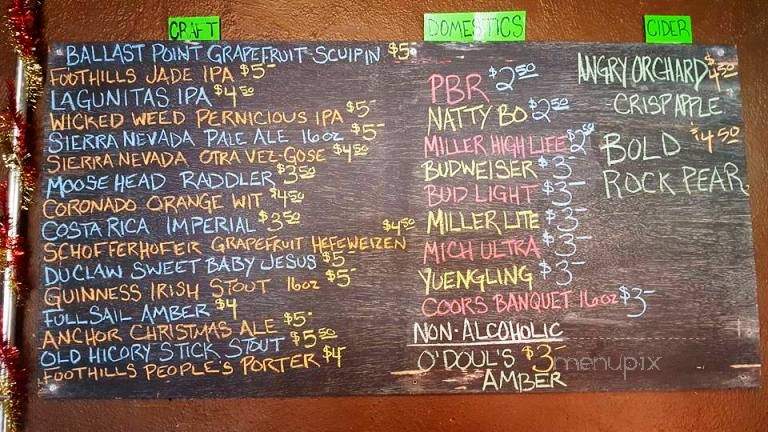 CRAFT
BALLAST POINT GRAPEFRUIT-SCULPIN $5-
FOOTHILLS JADE IPA $5-
LAGUNITAS IPA $4.50
WICKED WEED PERNICIOUS IPA $5-
SIERRA NEVADA PALE ALE 16oz $5-
SIERRA NEVADA OTRA VEZ-GOSE $4.50
MOOSE HEAD RADDLER $3.50
CORONADO ORANGE WIT $4.50
COSTA RICA IMPERIAL $3.50
SCHOFFERHOFER GRAPEFRUIT HEFEWEIZEN $4.50
DUCLAW SWEET BABY JESUS $5-
GUINNESS IRISH STOUT 16oz $5-
FULL SAIL AMBER $4
ANCHOR CHRISTMAS ALE $5-
OLD HICORY STICK STOUT $5.50
FOOTHILLS PEOPLE'S PORTER $4
DOMESTICS
PBR $2.50
NATTY BO $2.50
MILLER HIGH LIFE $2.50
BUDWEISER $3-
BUD LIGHT $3-
MILLER LITE $3-
MICH ULTRA $3-
YUENGLING $3-
COORS BANQUET 16oz $3-
NON-ALCOHOLIC
O'DOUL'S $3-
AMBER
CIDER
ANGRY ORCHARD $4.50
CRISP APPLE
BOLD $4.50
ROCK PEAR
menupix